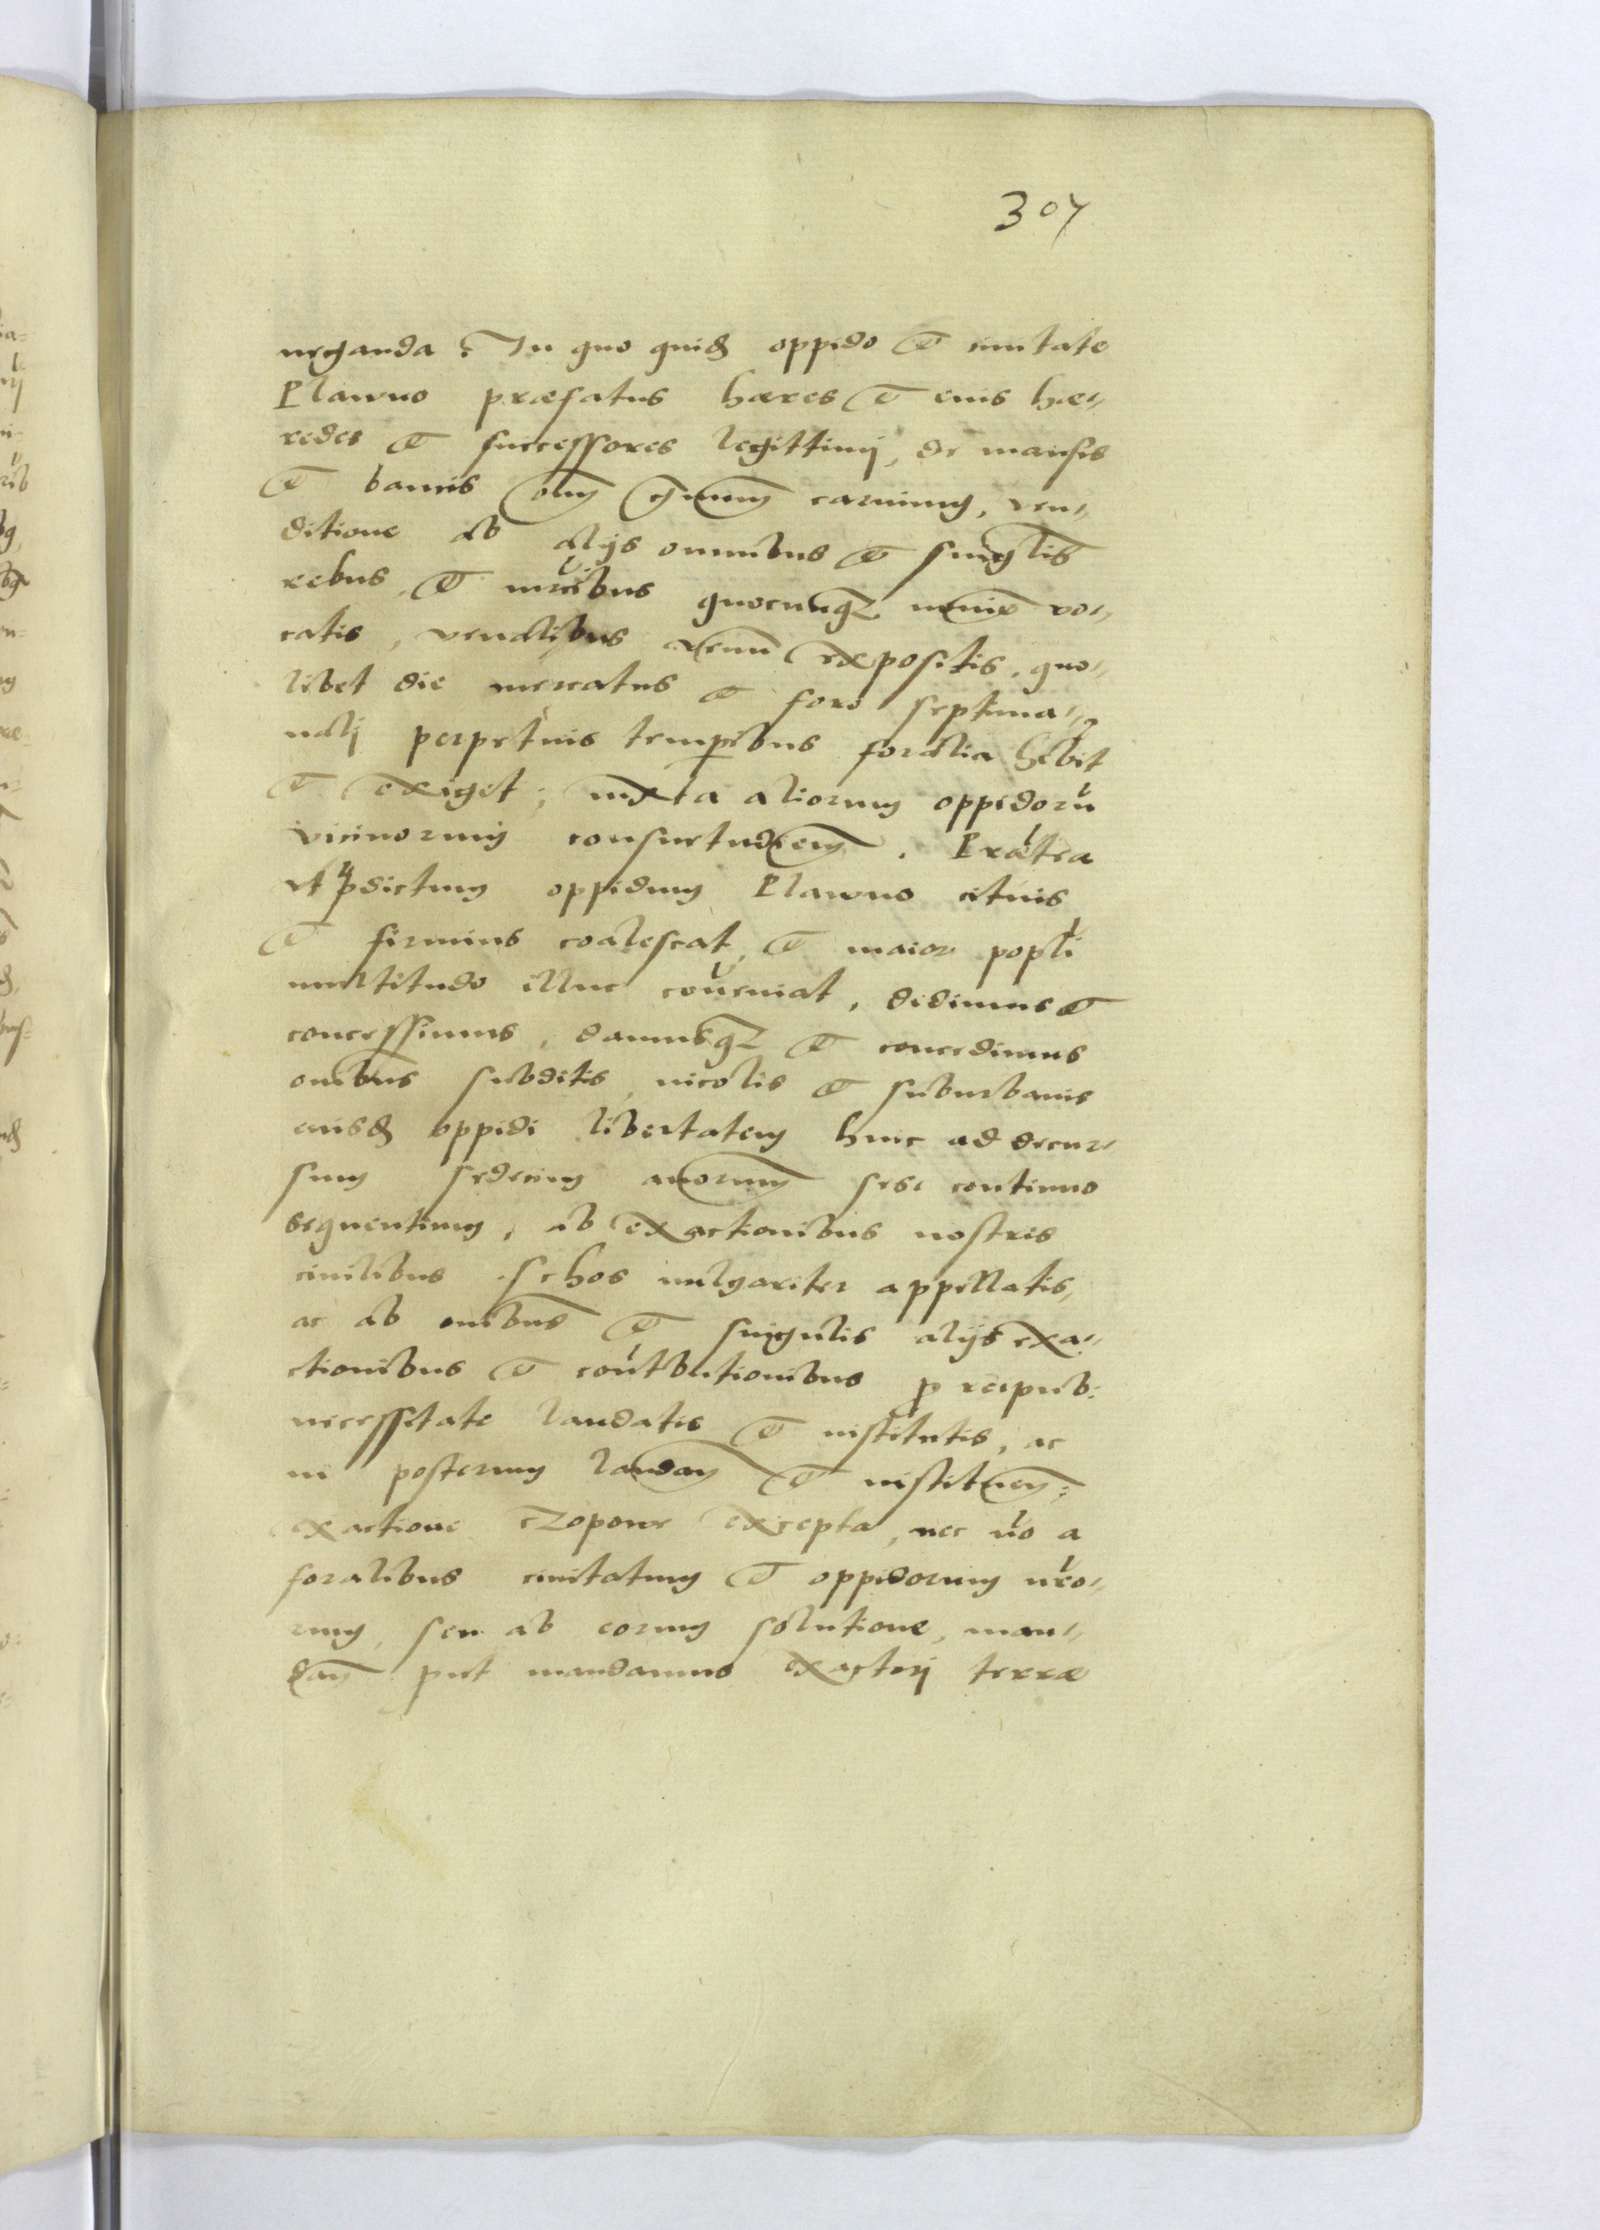 307
neganda. In quo quidẽ oppido et ciuitate
Plawno præfatus hæres et eius hæ-
redes et successores legittimj, de mansis
et bancis om̃ g̃num carnium, ven-
ditione ab alijs omnibus et singlis
rebus et mrcibus quocunq3 no͠ie vo-
catis, venalibus venũ expositis, quo-
libet die mercatus et foro septima-
nalj perpetuis tempibus foralia h̃ebit
et exiget, iuxta aliorum oppidorũ
vicinorum consuetud̃em. Prætea
vt p̃dictum oppidum Plawno citius
et firmius coalescat, et maior popli
multitudo illuc coueniat, dedimus et
concessimus, damusq3 et concedimus
om̃ibus subditis, incolis et suburbanis
eiusd oppidi libertatem hinc ad decur-
sum sedecim añorum sese continuo
sequentium, ab exactionibus nostris
ciuilibus schos vulgariter appellatis,
ac ab om̃ibus et singulis alijs exa-
ctionibus et cont̃butionibus p reipub:
necessitate laudatis et institutis, ac
in posterum laudañ et instituen̄:
exactione czopowe excepta, nec nõ a
foralibus ciuitatum et oppidorum nr̃o-
rum, seu ab eorum solutione, man-
dañ put mandamus exactorj terræ